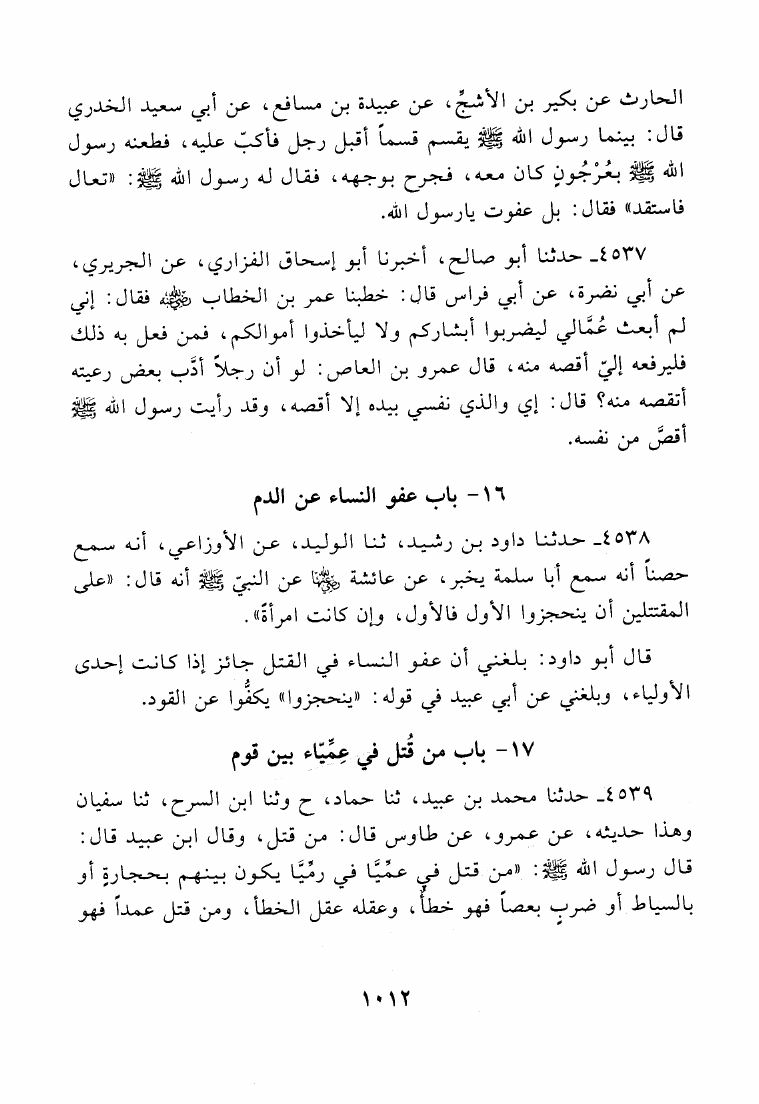 الحارث عن بكير بن الأشجِّ، عن عبيدة بن مسافع، عن أبي سعيد الخدري
قال: بينما رسول الله ﷺ يقسم قسماً أقبل رجل فأكبّ عليه، فطعنه رسول
الله ﷺ بعُرْجُونٍ كان معه، فجرح بوجهه، فقال له رسول الله ﷺ: «تعال
فاستقد» فقال: بل عفوت يارسول الله.
٤٥٣٧ـ حدثنا أبو صالح، أخبرنا أبو إسحاق الفزاري، عن الجريري،
عن أبي نضرة، عن أبي فراس قال: خطبنا عمر بن الخطاب رضي الله عنه فقال: إني
لم أبعث عُمَّالي ليضربوا أبشاركم ولا ليأخذوا أموالكم، فمن فعل به ذلك
فليرفعه إليّ أقصه منه، قال عمرو بن العاص: لو أن رجلاً أدَّب بعض رعيته
أتقصه منه؟ قال: إي والذي نفسي بيده إلا أقصه، وقد رأيت رسول الله ﷺ
أقصَّ من نفسه.
١٦- باب عفو النساء عن الدم
٤٥٣٨ـ حدثنا داود بن رشيد، ثنا الوليد، عن الأوزاعي، أنه سمع
حصناً أنه سمع أبا سلمة يخبر، عن عائشة رضي الله عنها عن النبيّ ﷺ أنه قال: «على
المقتتلين أن ينحجزوا الأول فالأول، وإن كانت امرأةً».
قال أبو داود: بلغني أن عفو النساء في القتل جائز إذا كانت إحدى
الأولياء، وبلغني عن أبي عبيد في قوله: «ينحجزوا» يكفُّوا عن القود.
١٧- باب من قُتل في عِمِّيّاء بين قوم
٤٥٣٩ـ حدثنا محمد بن عبيد، ثنا حماد، ح وثنا ابن السرح، ثنا سفيان
وهذا حديثه، عن عمرو، عن طاوس قال: من قتل، وقال ابن عبيد قال:
قال رسول الله ﷺ: «من قتل في عمِّيَّا في رمِّيَّا يكون بينهم بحجارةٍ أو
بالسياط أو ضربٍ بعصاً فهو خطأٌ، وعقله عقل الخطأ، ومن قتل عمداً فهو
١٠١٢